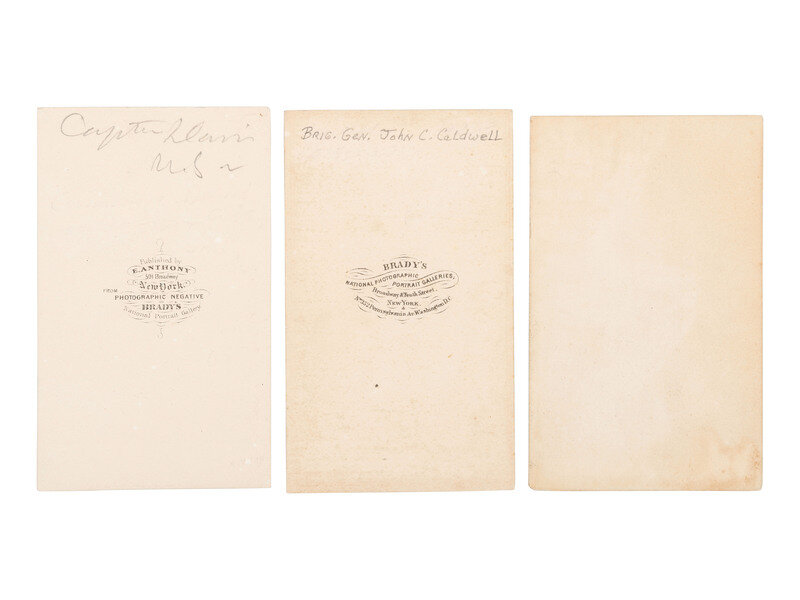 Captn Davis
U.S
Published by
E. ANTHONY
501 Broadway
New York.
FROM
PHOTOGRAPHIC NEGATIVE
BRADY'S
National Portrait Gallery.
BRIG. GEN. JOHN C. CALDWELL
BRADY'S
NATIONAL PHOTOGRAPHIC
PORTRAIT GALLERIES,
Broadway & Tenth Street,
NEW YORK.
&
No. 352 Pennsylvania Av. Washington D.C.